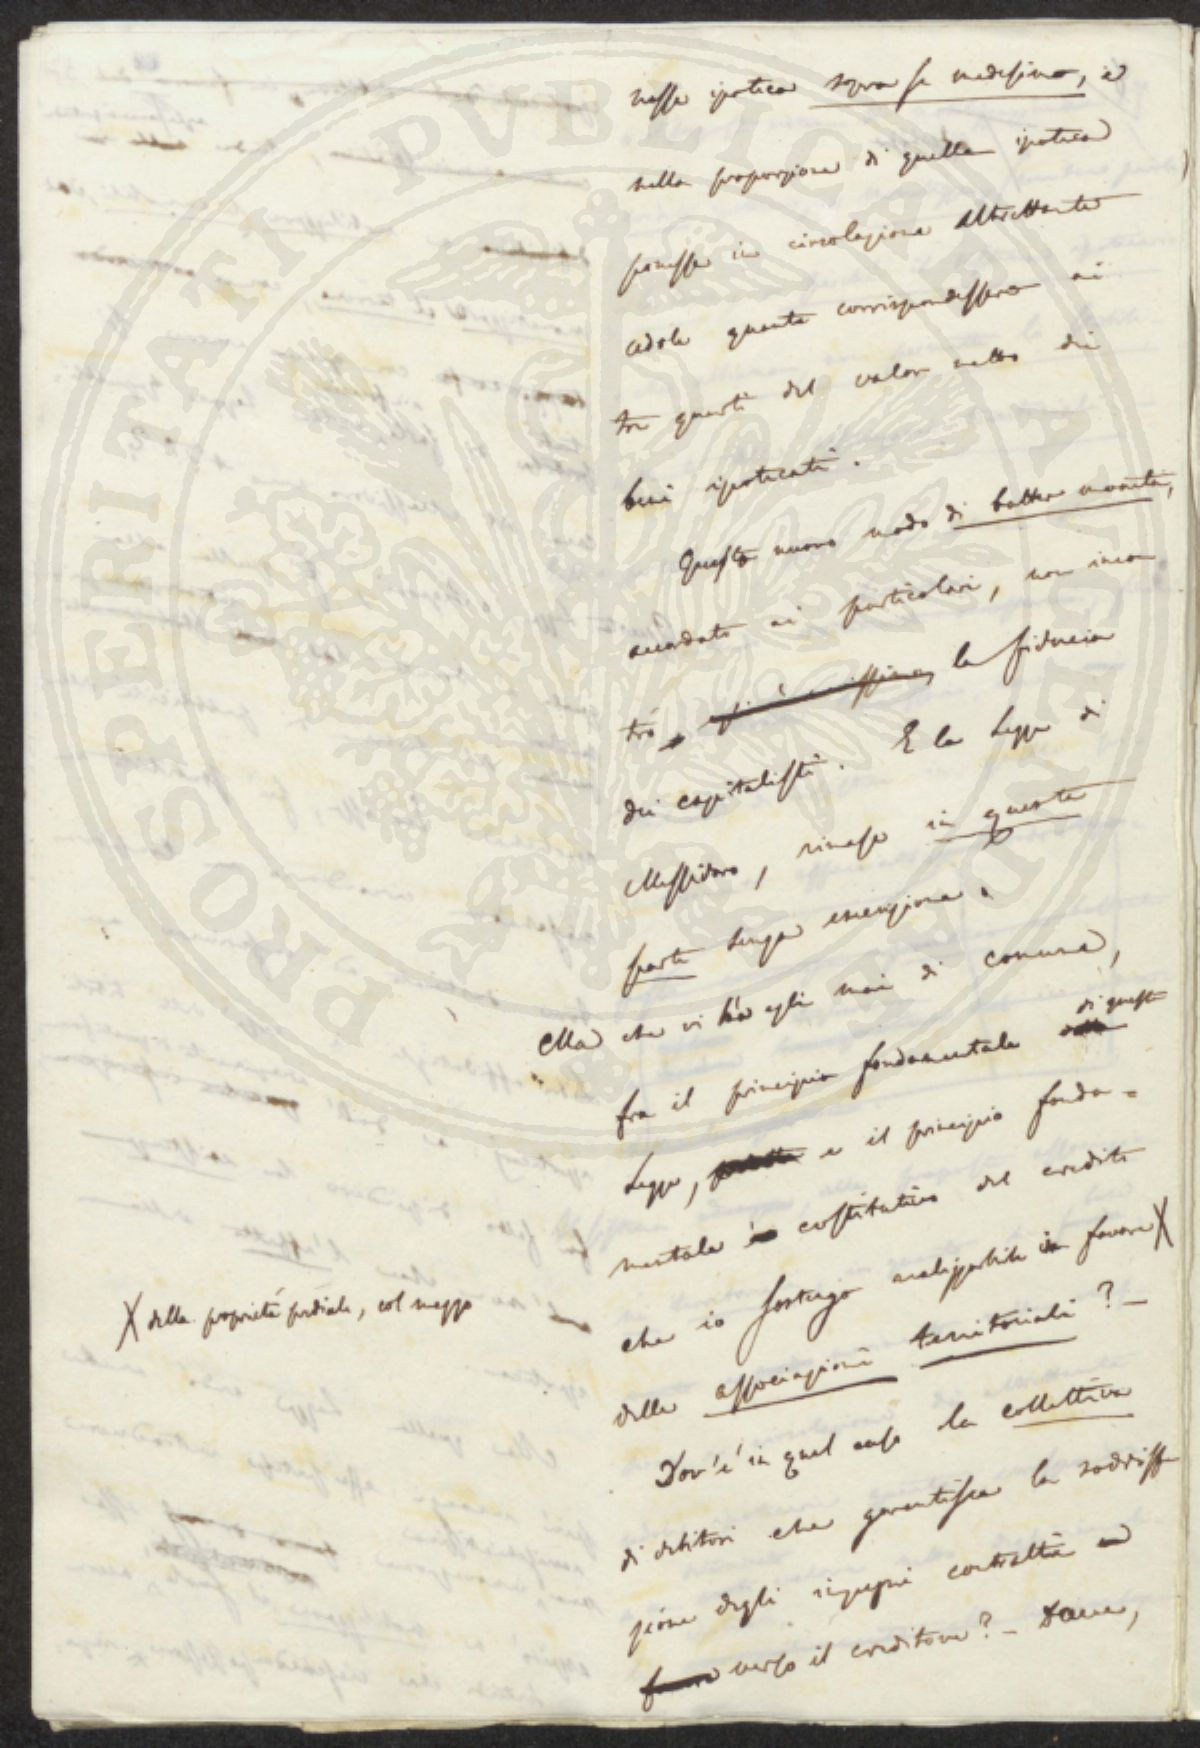 nasse ipoteca sopra se medesimo, e
nella proporzione di quella ipoteca
ponesse in circolazione altrettante
cedole quante corrispondessero ai
tre quarti del valor netto dei
beni ipotecati.
Questo nuovo modo di batter moneta,
accordato ai particolari, non incon
trò la fiducia
dei capitalisti. E la Legge di
Messidoro, rimase in questa
parte senza esecuzione.
Ma che vi ha egli mai di comune,
fra il principio fondamentale di questa
Legge, e il principio fonda-
mentale costitutivo del credito
che io sostengo realizzabile in favore X
X della proprietà prediale, col mezzo
delle associazioni territoriali? -
Dov'è in quel caso la collettiva
di debitori che garantisca la soddisfa
zione degli impegni contratti
verso il creditore? - Dove,
PROSPERITATI PVBLICAE AVGENDAE